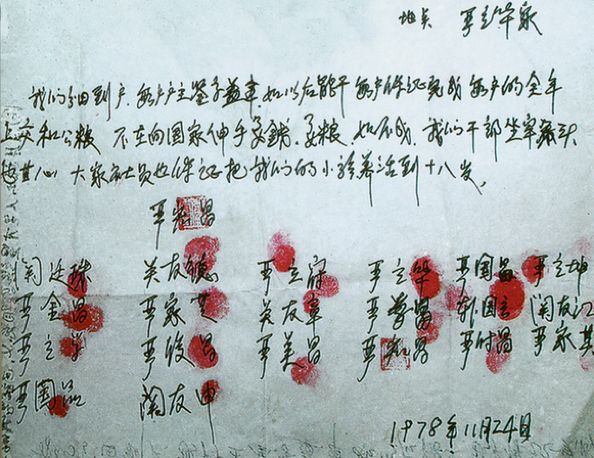 地点 严立华家
我们分田到户,每户户主签字盖章,如以后能干,每户保证完成每户的全年
上交和公粮 不在向国家伸手要钱要粮。如不成,我们干部坐牢杀头
也甘心,大家社员也保证把我们的小孩养活到十八岁。
严宏昌
关廷珠 关友德 严立符 严立华 严国昌 严立坤
严金昌 严家芝 关友章 严学昌 韩国云 关友江
严立学 严俊昌 严美昌 严宏昌 严付昌 严家其
严国品 关友申
1978年11月24日